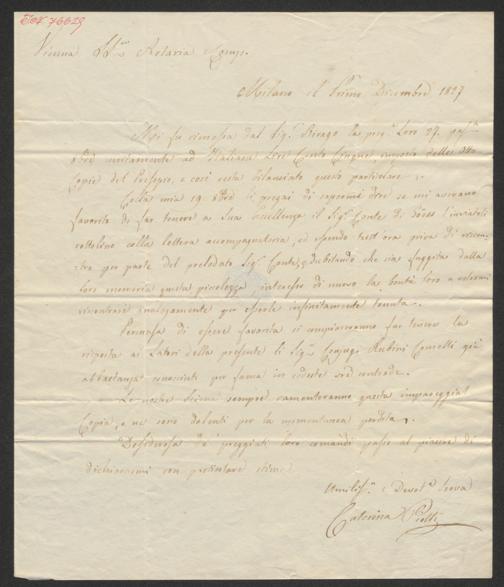 Vienna SSri Artaria Comp.
Milano il Primo Dicembre 1827
Mi fu rimessa dal Sigr la preg. Loro 27.
unitamente ad Italiane Lire Cento Cinque, importo delle
Copie del e così resta bilanciato questo particolare.
Colla mia 19 li pregai di sapermi dire se mi avevano
favorita di far tenere a Sua Eccellenza il Sigr Conte di l'inviatoli
colla lettera accompagnatoria, ed essendo tutt'ora priva di
per parte del prelodato Sigr Conte, dubitando che sia fuggita dalla
loro memoria questa piccolezza, di nuovo la bontà loro a volermi
riscontrare per esserle infinitamente tenuta.
Permessa di essere favorita si compiaceranno far tenere la
risposta ai Latori della presente li Sigri Conjugi Rubini Comelli già
abbastanza conosciuti per fama in codeste contrade.
Le nostre Scene sempre rammenteranno questa impareggiabil
Copia, e ne sono dolenti per la momentanea perdita.
Desiderosa de' preggiati loro comandi passo al piacere di
dichiararmi con particolare stima
Umiliss. e Devota Serva
Caterina